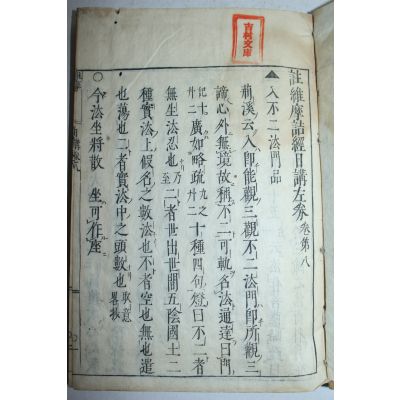 註維摩詰經日講左券 卷第八
▲入不二法門品
荊溪云入即能觀三觀不二法門即所觀三
諦心外無境故稱不二可軌名法通達曰門
記十廣如略疏九之十種四句燈曰不二者
無生法忍也乃至二者世出世間五陰國土二
種實法上假名之數法也不者空也無也遣
也蕩也二者實法中之頭數也取意畧抜
○今法坐將散 坐可作座
吉村文庫